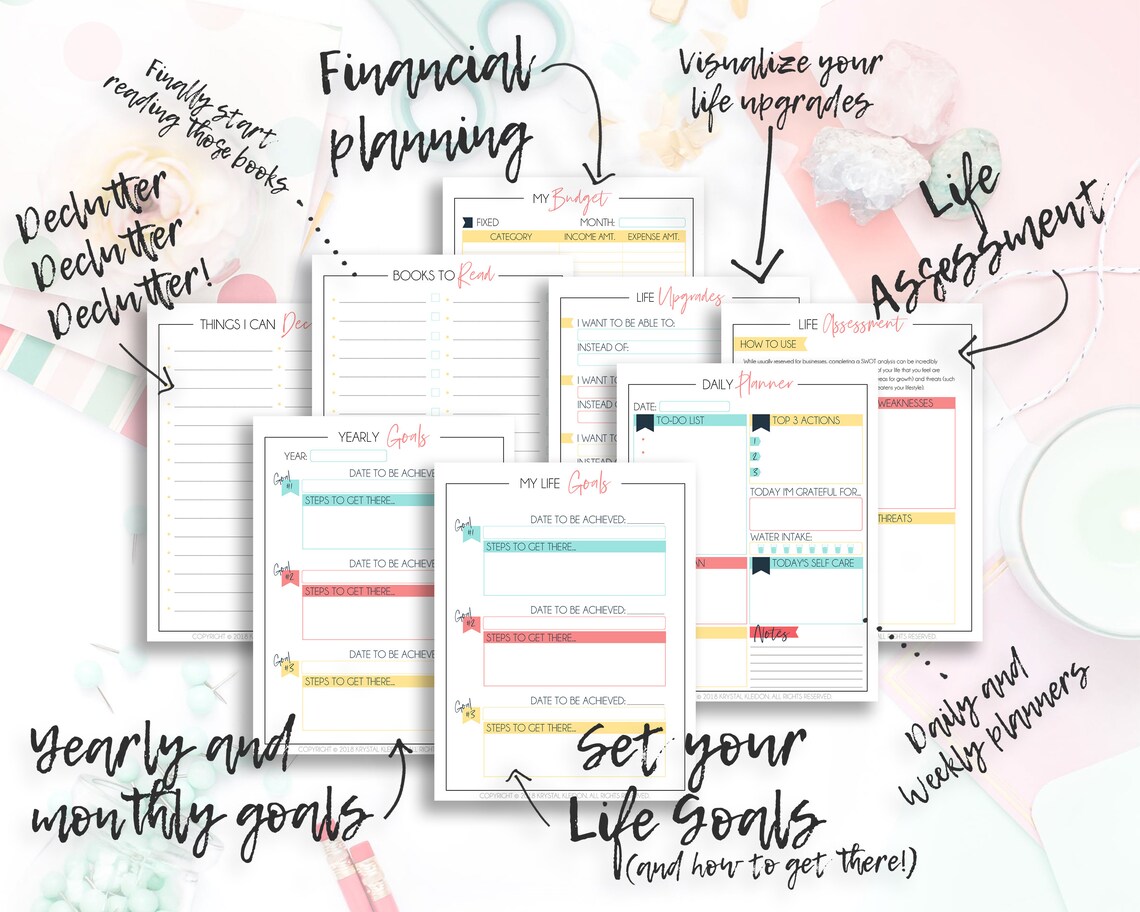 Finally start
reading those books
Financial
planning
Visualize your
life upgrades
Declutter
Declutter
Declutter!
Life
Assessment
MY Budget
FIXED
MONTH:
CATEGORY
INCOME AMT.
EXPENSE AMT.
BOOKS TO Read
THINGS I CAN Dec
LIFE Upgrades
I WANT TO BE ABLE TO:
INSTEAD OF:
I WANT TO
INSTEAD O
I WANT TO
INSTEAD
LIFE Assessment
HOW TO USE
While usually reserved for businesses, completing a SWOT analysis can be incredibly
of your life that you feel are
areas for growth) and threats (such
threaten your lifestyle).
WEAKNESSES
THREATS
DAILY Planner
DATE:
TO-DO LIST
TOP 3 ACTIONS
1
2
3
TODAY I'M GRATEFUL FOR...
WATER INTAKE:
TODAY'S SELF CARE
Notes
© 2018 KRYSTAL KLEIDON. ALL RIGHTS RESERVED.
ALL RIGHTS RESERVED.
COPYRIGHT © 2018 KR
YEARLY Goals
YEAR:
DATE TO BE ACHIEVE
Goal #1
STEPS TO GET THERE...
DATE TO BE ACHIEVE
Goal #2
STEPS TO GET THERE...
DATE TO BE ACHIEVE
Goal #3
STEPS TO GET THERE...
COPYRIGHT © 2018 KRYSTAL KLEIDON. AL
MY LIFE Goals
DATE TO BE ACHIEVED:
Goal #1
STEPS TO GET THERE...
DATE TO BE ACHIEVED:
Goal #2
STEPS TO GET THERE...
DATE TO BE ACHIEVED:
Goal #3
STEPS TO GET THERE...
COPYRIGHT © 2018 KRYSTAL KLEIDON. ALL RIGHTS RESERVED.
Yearly and
monthly goals
Set your
Life Goals
(and how to get there!)
Daily and
Weekly planners